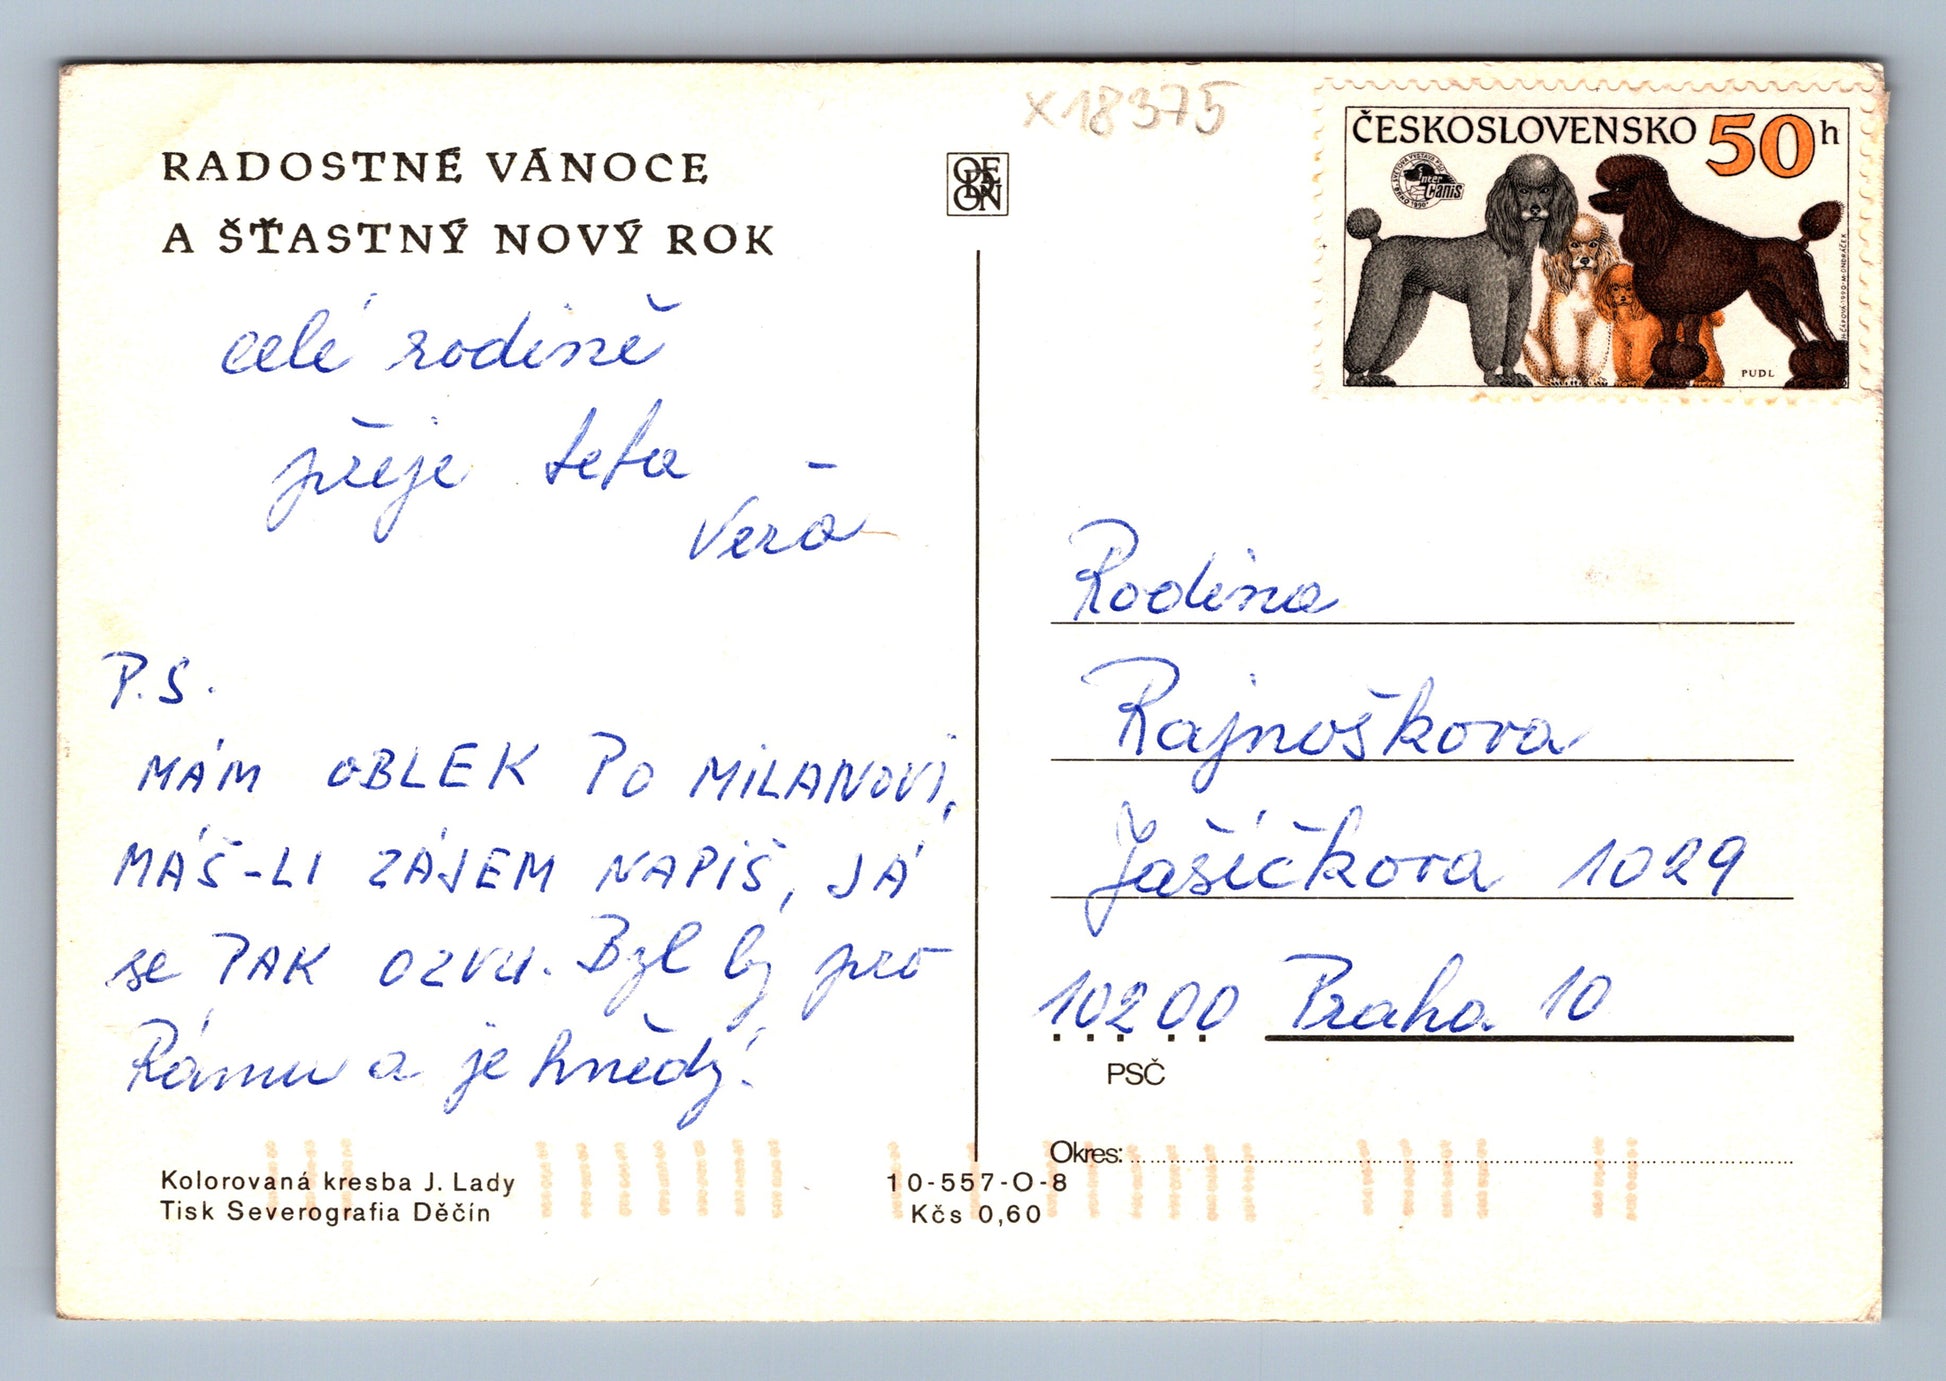 x18375
RADOSTNÉ VÁNOCE
A ŠŤASTNÝ NOVÝ ROK
celé rodině
přeje teta
Věra
P.S.
MÁM OBLEK PO MILANOVI,
MÁŠ-LI ZÁJEM NAPIŠ, JÁ
se PAK OZVU. Byl by pro
Rámu a je hnědý!
Kolorovaná kresba J. Lady
Tisk Severografia Děčín
10-557-O-8
Kčs 0,60
ODEON
ČESKOSLOVENSKO 50h
Inter Canis
PUDL
Rodina
Rajnoškova
Jašíčkova 1029
10200 Praha 10
PSČ
Okres: